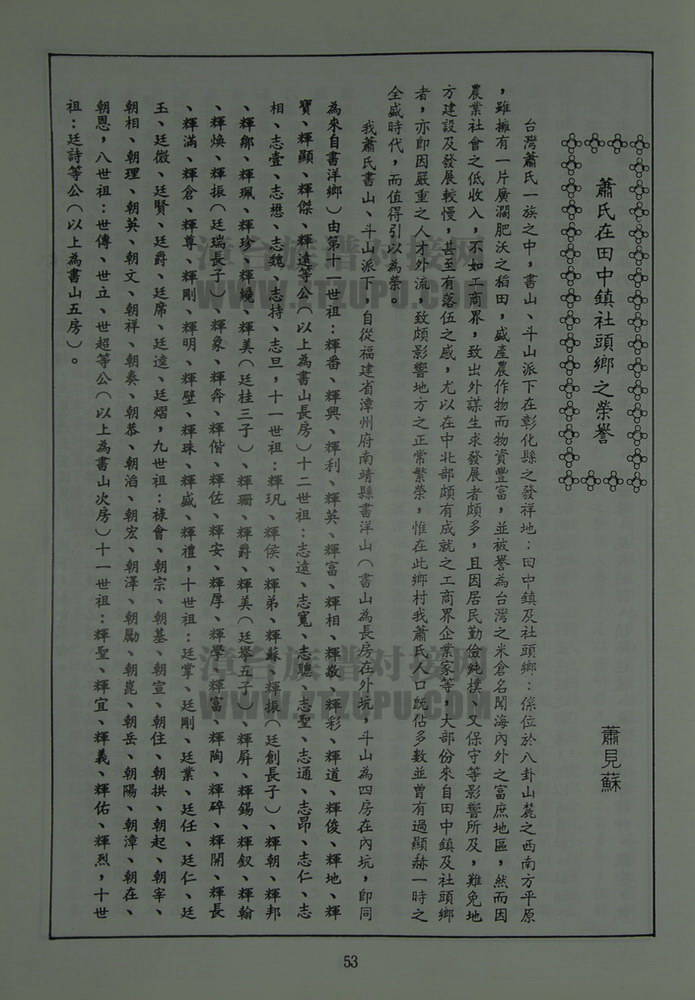 蕭氏在田中鎮社頭鄉之榮譽
蕭見蘇
台灣蕭氏一族之中，書山、斗山派下在彰化縣之發祥地：田中鎮及社頭鄉：係位於八卦山麓之西南方平原
，雖擁有一片廣濶肥沃之稻田，盛產農作物而物資豐富，並被譽為台灣之米倉名聞海內外之富庶地區，然而因
農業社會之低收入，不如工商界，致出外謀生求發展者頗多，且因居民勤儉純樸、又保守等影響所及，難免地
方建設及發展較慢，甚至有落伍之感，尤以在中北部頗有成就之工商界企業家等，大部份來自田中鎮及社頭鄉
者，亦即因嚴重之人才外流，致頗影響地方之正常繁榮，惟在此鄉村我蕭氏人口既佔多數並曾有過顯赫一時之
全盛時代，而值得引以為榮。
我蕭氏書山、斗山派下，自從福建省漳州府南靖縣書洋山（書山為長房在外坑，斗山為四房在內坑，即同
為來自書洋鄉）由第十一世祖：輝番、輝興、輝利、輝英、輝富、輝相、輝敬、輝彩、輝道、輝俊、輝地、輝
寶、輝顯、輝傑、輝遠等公（以上為書山長房）十二世祖：志遠、志寬、志聰、志聖、志通、志昂、志仁、志
相、志壹、志懋、志魏、志持、志旦，十一世祖：輝汎、輝侯、輝弟、輝蘇、輝振（廷創長子）、輝朝、輝邦
、輝鄉、輝珮、輝珍、輝嬈、輝美（廷桂三子）、輝珊、輝爵、輝美（廷舉五子）、輝屏、輝錫、輝釵、輝翰
、輝煥、輝振（廷瑞長子）、輝象、輝奔、輝偕、輝佐、輝安、輝厚、輝學、輝富、輝陶、輝碎、輝開、輝長
、輝滿、輝倉、輝尊、輝剛、輝明、輝壁、輝珠、輝盛、輝禮，十世祖：廷掌、廷剛、廷業、廷任、廷仁、廷
玉、廷徵、廷賢、廷爵、廷席、廷遠、廷熠，九世祖：祿會、朝宗、朝基、朝宣、朝住、朝拱、朝起、朝宰、
朝相、朝理、朝英、朝文、朝祥、朝奏、朝恭、朝滔、朝宏、朝澤、朝勵、朝崑、朝岳、朝陽、朝漳、朝在、
朝恩，八世祖：世傳、世立、世超等公（以上為書山次房）十一世祖：輝聖、輝宜、輝義、輝佑、輝烈，十世
祖：廷詩等公（以上為書山五房）。
53
漳台族譜对接网
WWW.ZTZUPU.COM
漳台族譜对接网
WWW.ZTZUPU.COM